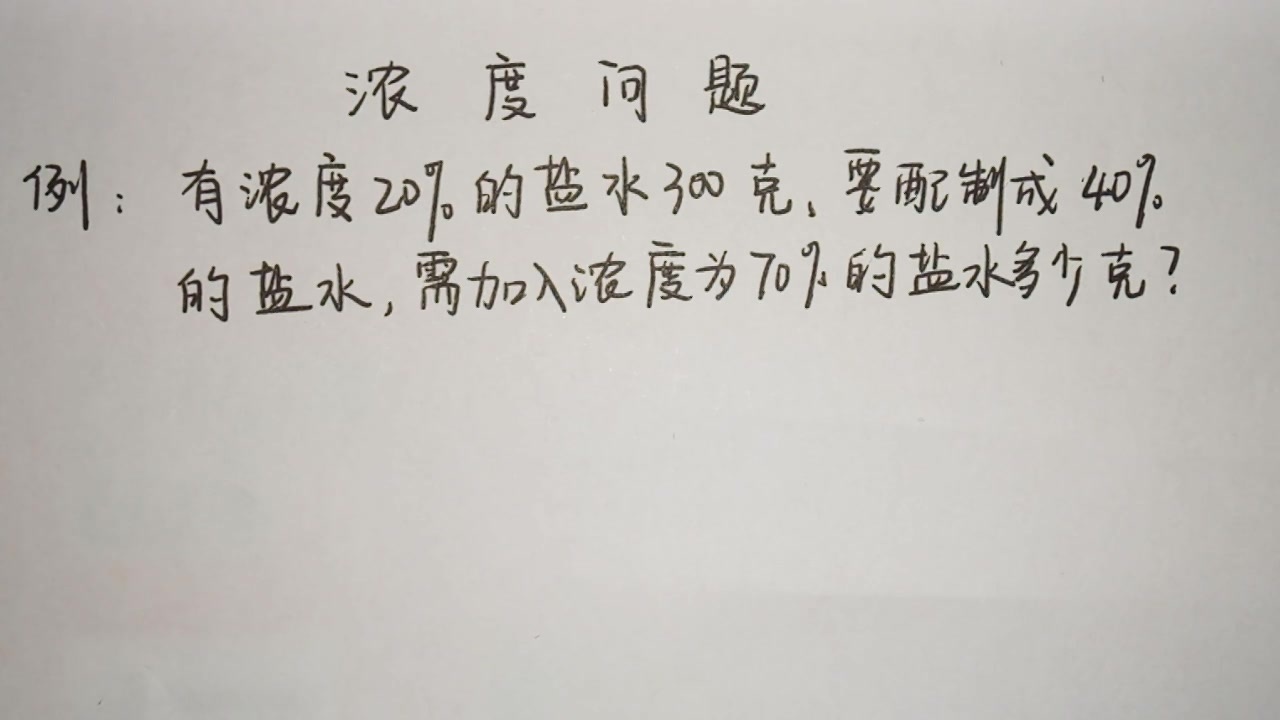 浓度问题
例：有浓度20%的盐水300克，要配制成40%
的盐水，需加入浓度为70%的盐水多少克？